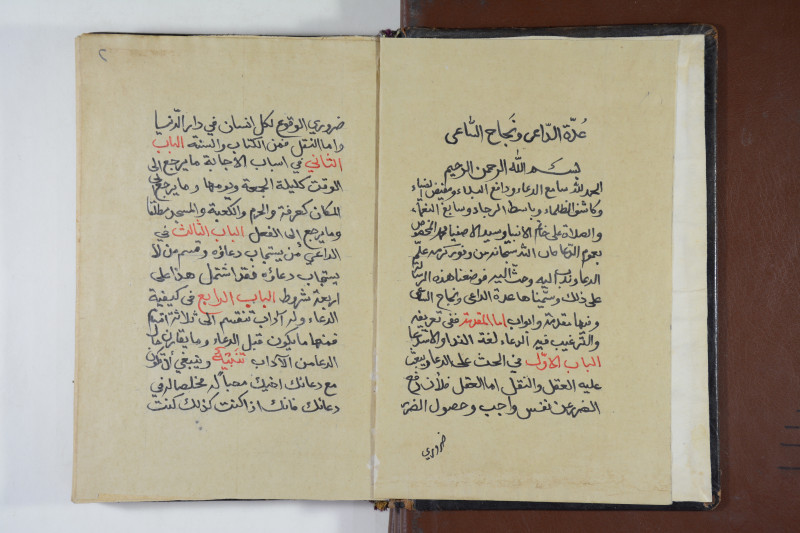 عُدّة الدّاعى ونَجاح السّاعى
بسم الله الرحمن الرحيم
الحمد لله سامع الدعاء ودافع البلاء ومفيض الضياء
وكاشف الظلماء وباسط الرجاء وسابغ النعماء
والصلاة على خاتم الانبياء وسيد الاصفياء محمد المخصوص
بعموم الدعاء فان الله سبحانه من وفور كرمه علّم
الدعاء وندب اليه وحث اليه فوضعنا هذه الرسالة
على ذلك وسمّيناها عدة الداعى ونجاح الساعى
وفيها مقدمة وابواب اما المقدمة ففى تعريفه
والترغيب فيه الدعاء لغة النداء والاستدعاء
الباب الاوّل في الحث على الدعاء ويبعث
عليه العقل والنقل اما العقل فلان دفع
الضرر عن نفس واجب وحصول الضرر
ضروري
٢
ضروري الوقوع لكل انسان في دار الدّنيا
واما النقل فمن الكتاب والسنة الباب
الثاني في اسباب الاجابة ما يرجع الى
الوقت كليلة الجمعة ويومها وما يرجع الى
المكان كعرفة والحرم والكعبة والمسجد مطلقا
وما يرجع الى الفعل الباب الثالث في
الداعي من يستجاب دعاؤه وقسم من لا
يستجاب دعاؤه فقد اشتمل هذا على
اربعة شروط الباب الرابع في كيفية
الدعاء وله آداب تنقسم الى ثلاثة اقسام
فمنها ما يكون قبل الدعاء وما يقارن حال
الدعا من الآداب تنبيه وينبغي أن تكون
مع دعائك اخيك محباً له مخلصا له في
دعائك فانك اذا كنت كذلك كنت